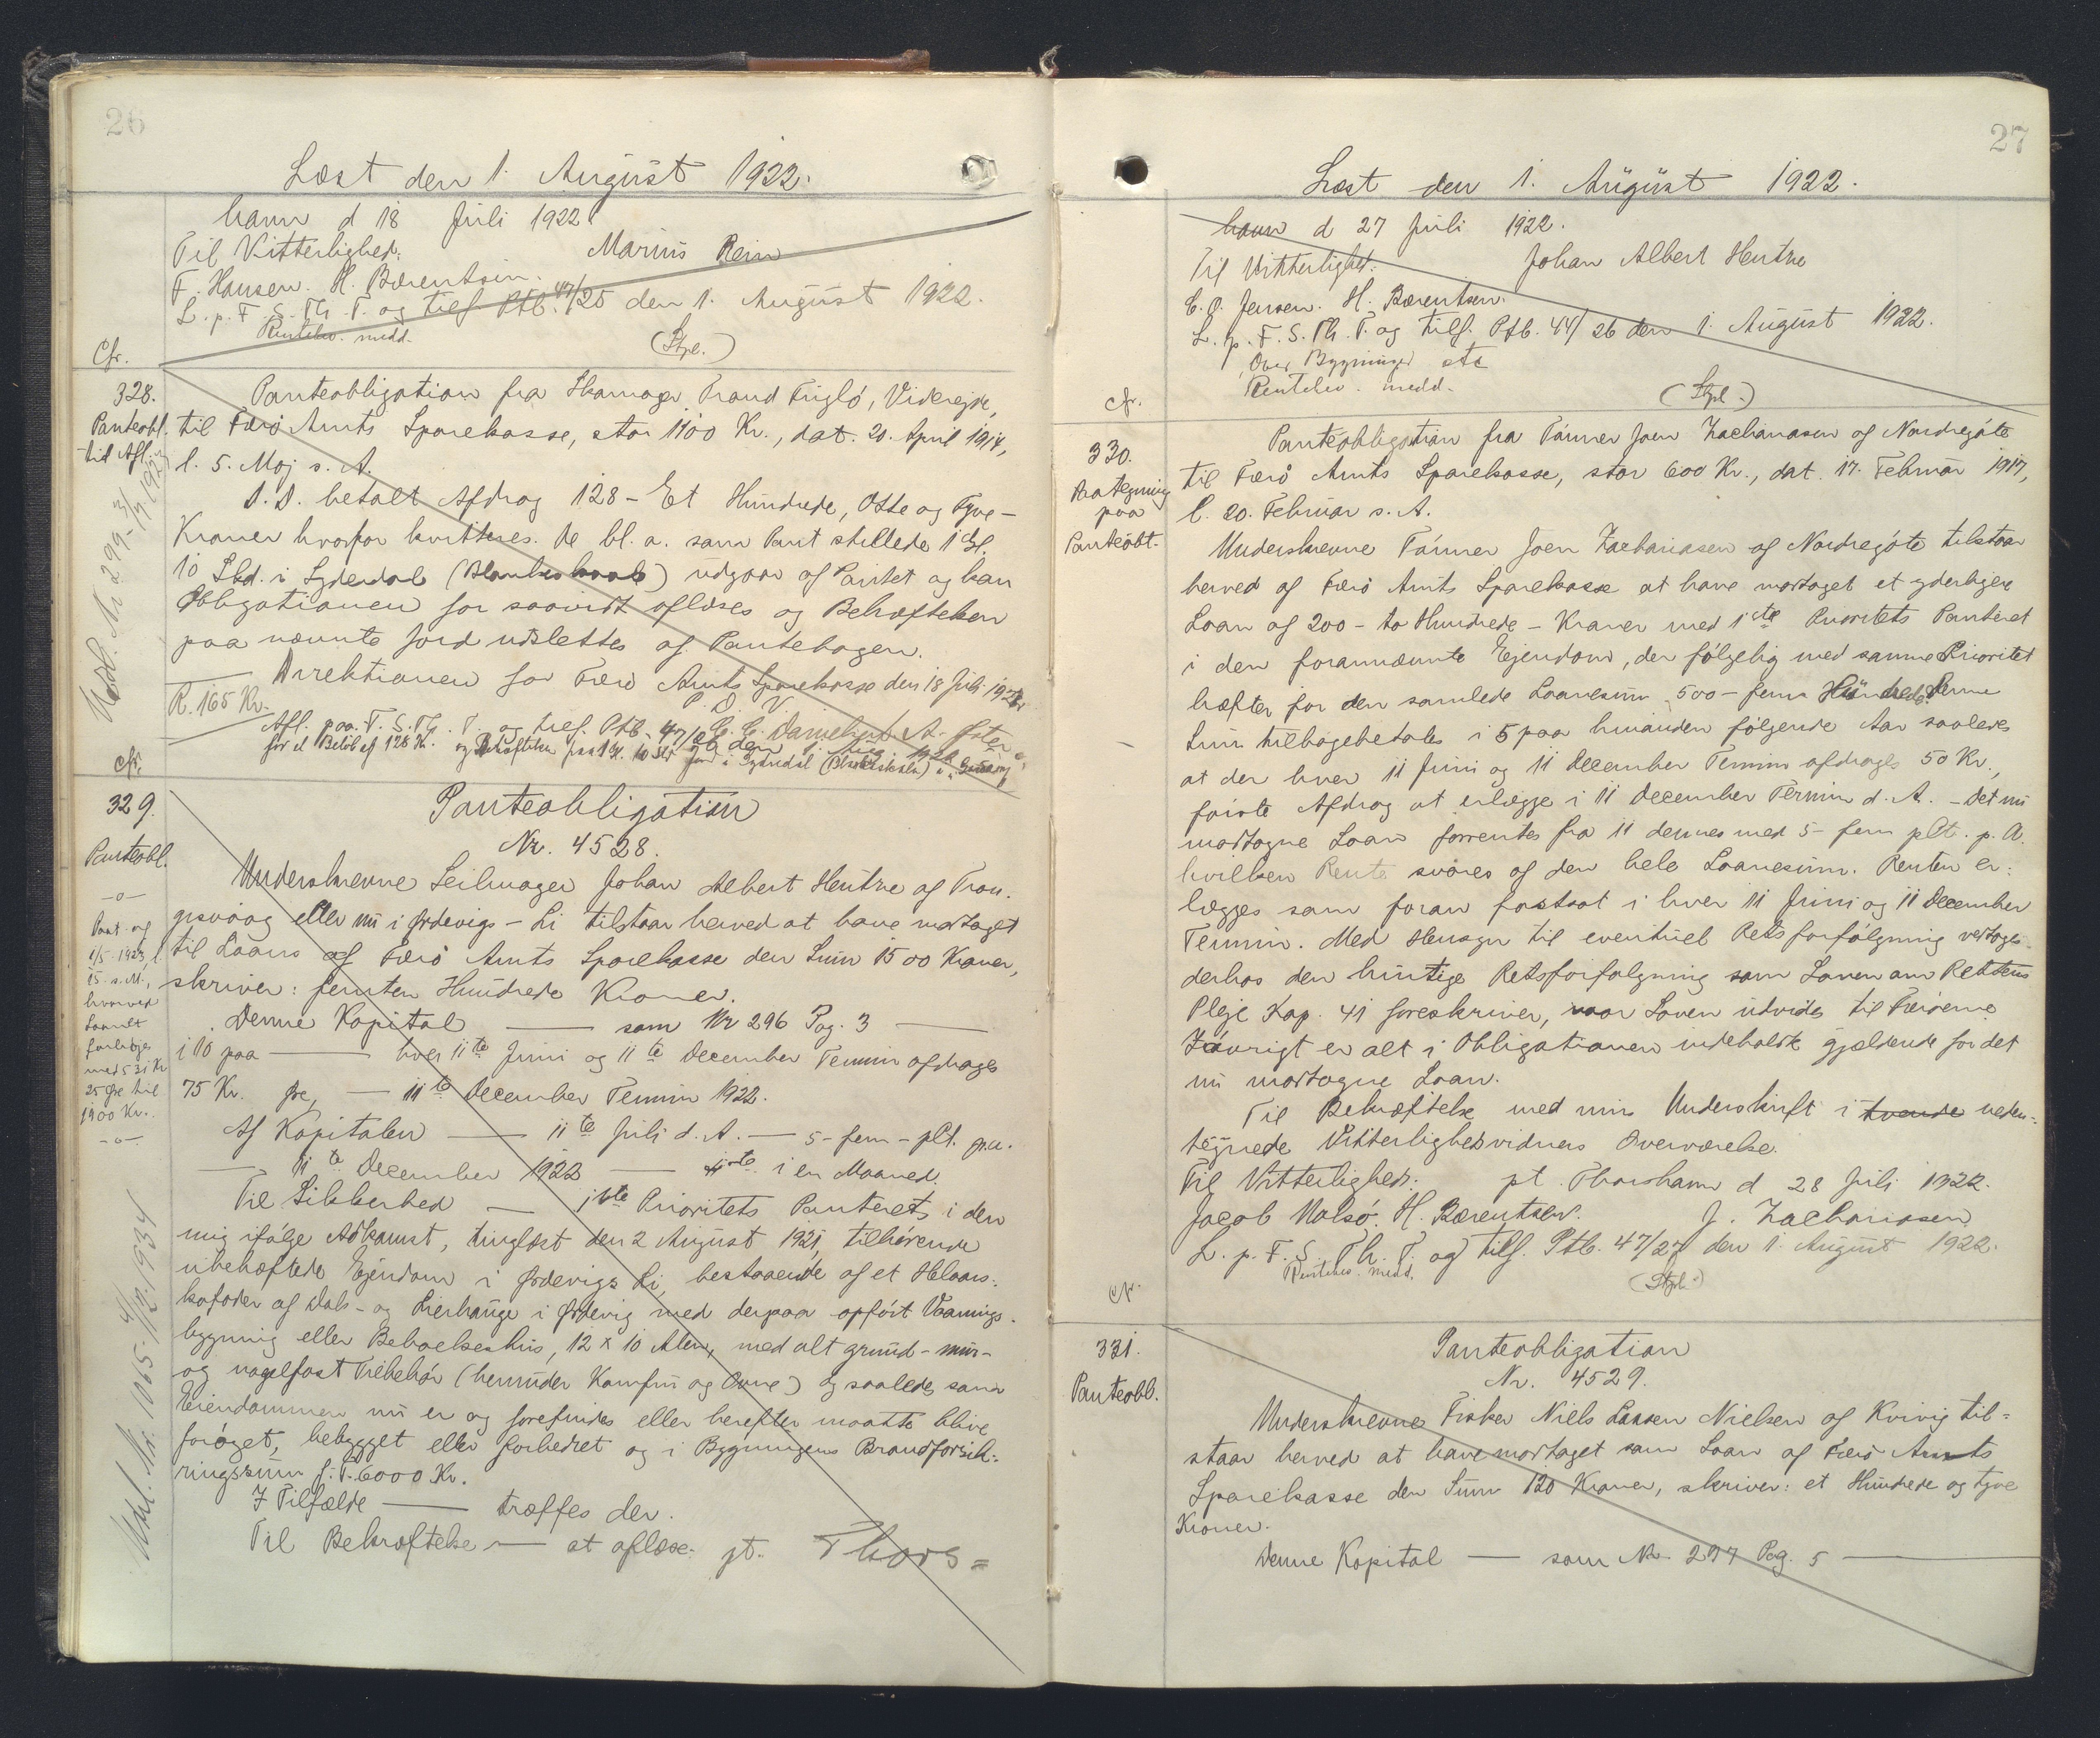 26
Læst den 1. August 1922.
havn d 18 Juli 1922
Til Vitterlighed: Marius Rein
F. Hansen. H. Bærentsen.
L. p. F. S. Th. T. og tilf. Ptb. 47/25 den 1. August 1922.
Rentebev. medd. (Stpl.)
Cfr.
328.
Panteobl.
til Afl.
Panteobligation fra Skomager Trond Trigló, Viderejde,
til Færø Amts Sparekasse, stor 1100 Kr., dat. 20. April 1914,
l. 5. Maj s. A.
D.D. betalt Afdrag 128 - Et Hundrede, Otte og Tyve -
Kroner hvorfor kvitteres. De bl. a. som Pant stillede 1 Gl.
10 Skd. i Syderdal (Blankeskaale) udgaar af Pantet og kan
Obligationen for saavidt aflæses og Behæftelsen
paa nævnte Jord udslettes af Pantebogen.
Direktionen for Færø Amts Sparekasse den 18 Juli 1922
P. D. V.
R. 165 Kr.
Afl. paa F. S. Th. T. og tilf. Ptb. 47/26 den 1. Aug. 1922
for et Beløb af 128 Kr. og Behæftelsen paa 1 Gl. 10 Skd Jord i Syderdal
Modl. Nr. 299-3/7 1923
Cfr.
329.
Panteobl.
-o-
Paat. af
1/5 1923, l.
15. s. M.,
hvorved
Laanet
forhøjes
med 531 Kr
25 Øre til
1900 Kr.
-o-
Modl. Nr. 1065-4/12 1934
Panteobligation
Nr. 4528.
Underskrevne Seilmager Johan Albert Hentze af Tron-
gisvaag eller nu i Ørdevigs-Li tilstaar herved at have modtaget
til Laans af Færø Amts Sparekasse den Sum 1500 Kroner,
skriver: femten Hundrede Kroner.
Denne Kapital — som Nr 296 Pag. 3 —
i 10 paa — hver 11te Juni og 11te December Termin afdrages
75 Kr. Øre, — 11te December Termin 1922.
Af Kapitalen — 11te Juli d. A. — 5 - fem - pCt. p.a.
— 11te December 1922 — i en Maaned.
Til Sikkerhed — 1ste Prioritets Panteret i den
mig ifølge Adkomst, tinglæst den 2 August 1921, tilhørende
ubehæftede Ejendom i Ørdevigs Li, bestaaende af et Helaars-
kofoder af Dals- og Lierhauge i Ørdevig med derpaa opført Vaanings-
bygning eller Beboelseshus, 12 x 10 Alen, med alt grund- mur-
og nagelfast Tilbehør (herunder Komfur og Ovne) og saaledes som
Eiendommen nu er og forefindes eller herefter maatte blive
forøget, bebygget eller forbedret og i Bygningens Brandforsik-
ringssum f. T. 6000 Kr.
I Tilfælde — træffes der.
Til Bekræftelse — at aflæse. pt. Thors=
27
Læst den 1. August 1922.
havn d 27 Juli 1922.
Til Vitterlighed: Johan Albert Hentze
C. O. Jensen. H. Bærentsen.
L. p. F. S. Th. T. og tilf. Ptb. 47/26 den 1. August 1922.
Over Bygninger etc
Rentebev. medd. (Stpl.)
Cfr.
330.
Paategning
paa
Panteobl.
Panteobligation fra Tømrer Joen Zachariasen af Nordregøte
til Færø Amts Sparekasse, stor 600 Kr., dat. 17. Februar 1917,
l. 20. Februar s. A.
Underskrevne Tømrer Joen Zachariasen af Nordregøte tilstaar
herved af Færø Amts Sparekasse at have modtaget et yderligere
Laan af 200 - to Hundrede - Kroner med 1ste Prioritets Panteret
i den forannævnte Ejendom, der følgelig med samme Prioritet
hæfter for den samlede Laanesum 500 - fem Hundrede. Denne
Sum tilbagebetales i 5 paa hinanden følgende Aar saaledes
at der hver 11 Juni og 11 December Termin afdrages 50 Kr.,
første Afdrag at erlægge i 11 December Termin d. A. - Det nu
modtagne Laan forrentes fra 11 dennes med 5 - fem pCt. p. A.
hvilken Rente svares af den hele Laanesum. Renten er-
lægges som foran fastsat i hver 11 Juni og 11 December
Termin. Med Hensyn til eventuel Retsforfølgning vedtages
derhos den hurtige Retsforfølgning som Loven om Rettens
Pleje Kap. 41 foreskriver, naar Loven udvides til Færøerne
Iøvrigt er alt i Obligationen indeholdt gjældende for det
nu modtagne Laan.
Til Bekræftelse med min Underskrift i tvende neden-
tegnede Vitterlighedsvidners Overværelse.
Til Vitterlighed: pt. Thorshavn d 28 Juli 1922.
Jacob Nolsø. H. Bærentsen. J. Zachariasen
L. p. F. S. Th. T. og tilf. Ptb. 47/27 den 1. August 1922.
Rentebev. medd. (Stpl.)
Cfr.
331.
Panteobl.
Panteobligation
Nr. 4529.
Underskrevne Fisker Niels Larsen Nielsen af Kvivig til=
staar herved at have modtaget som Laan af Færø Amts
Sparekasse den Sum 120 Kroner, skriver: et Hundrede og tyve
Kroner.
Denne Kapital — som Nr. 297 Pag. 5 —